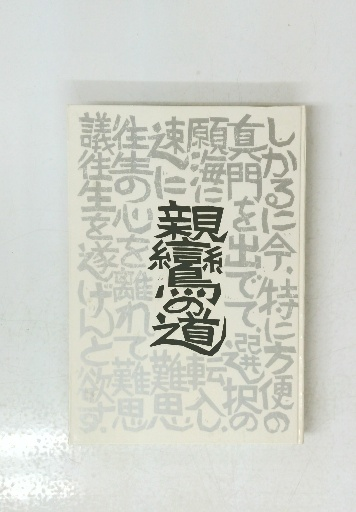 親鸞の道
しかるに今、特に方便の
真門を出でて、選択の
願海に転入し、
速かに難思
往生の心を離れて難思
議往生を遂げんと欲す。